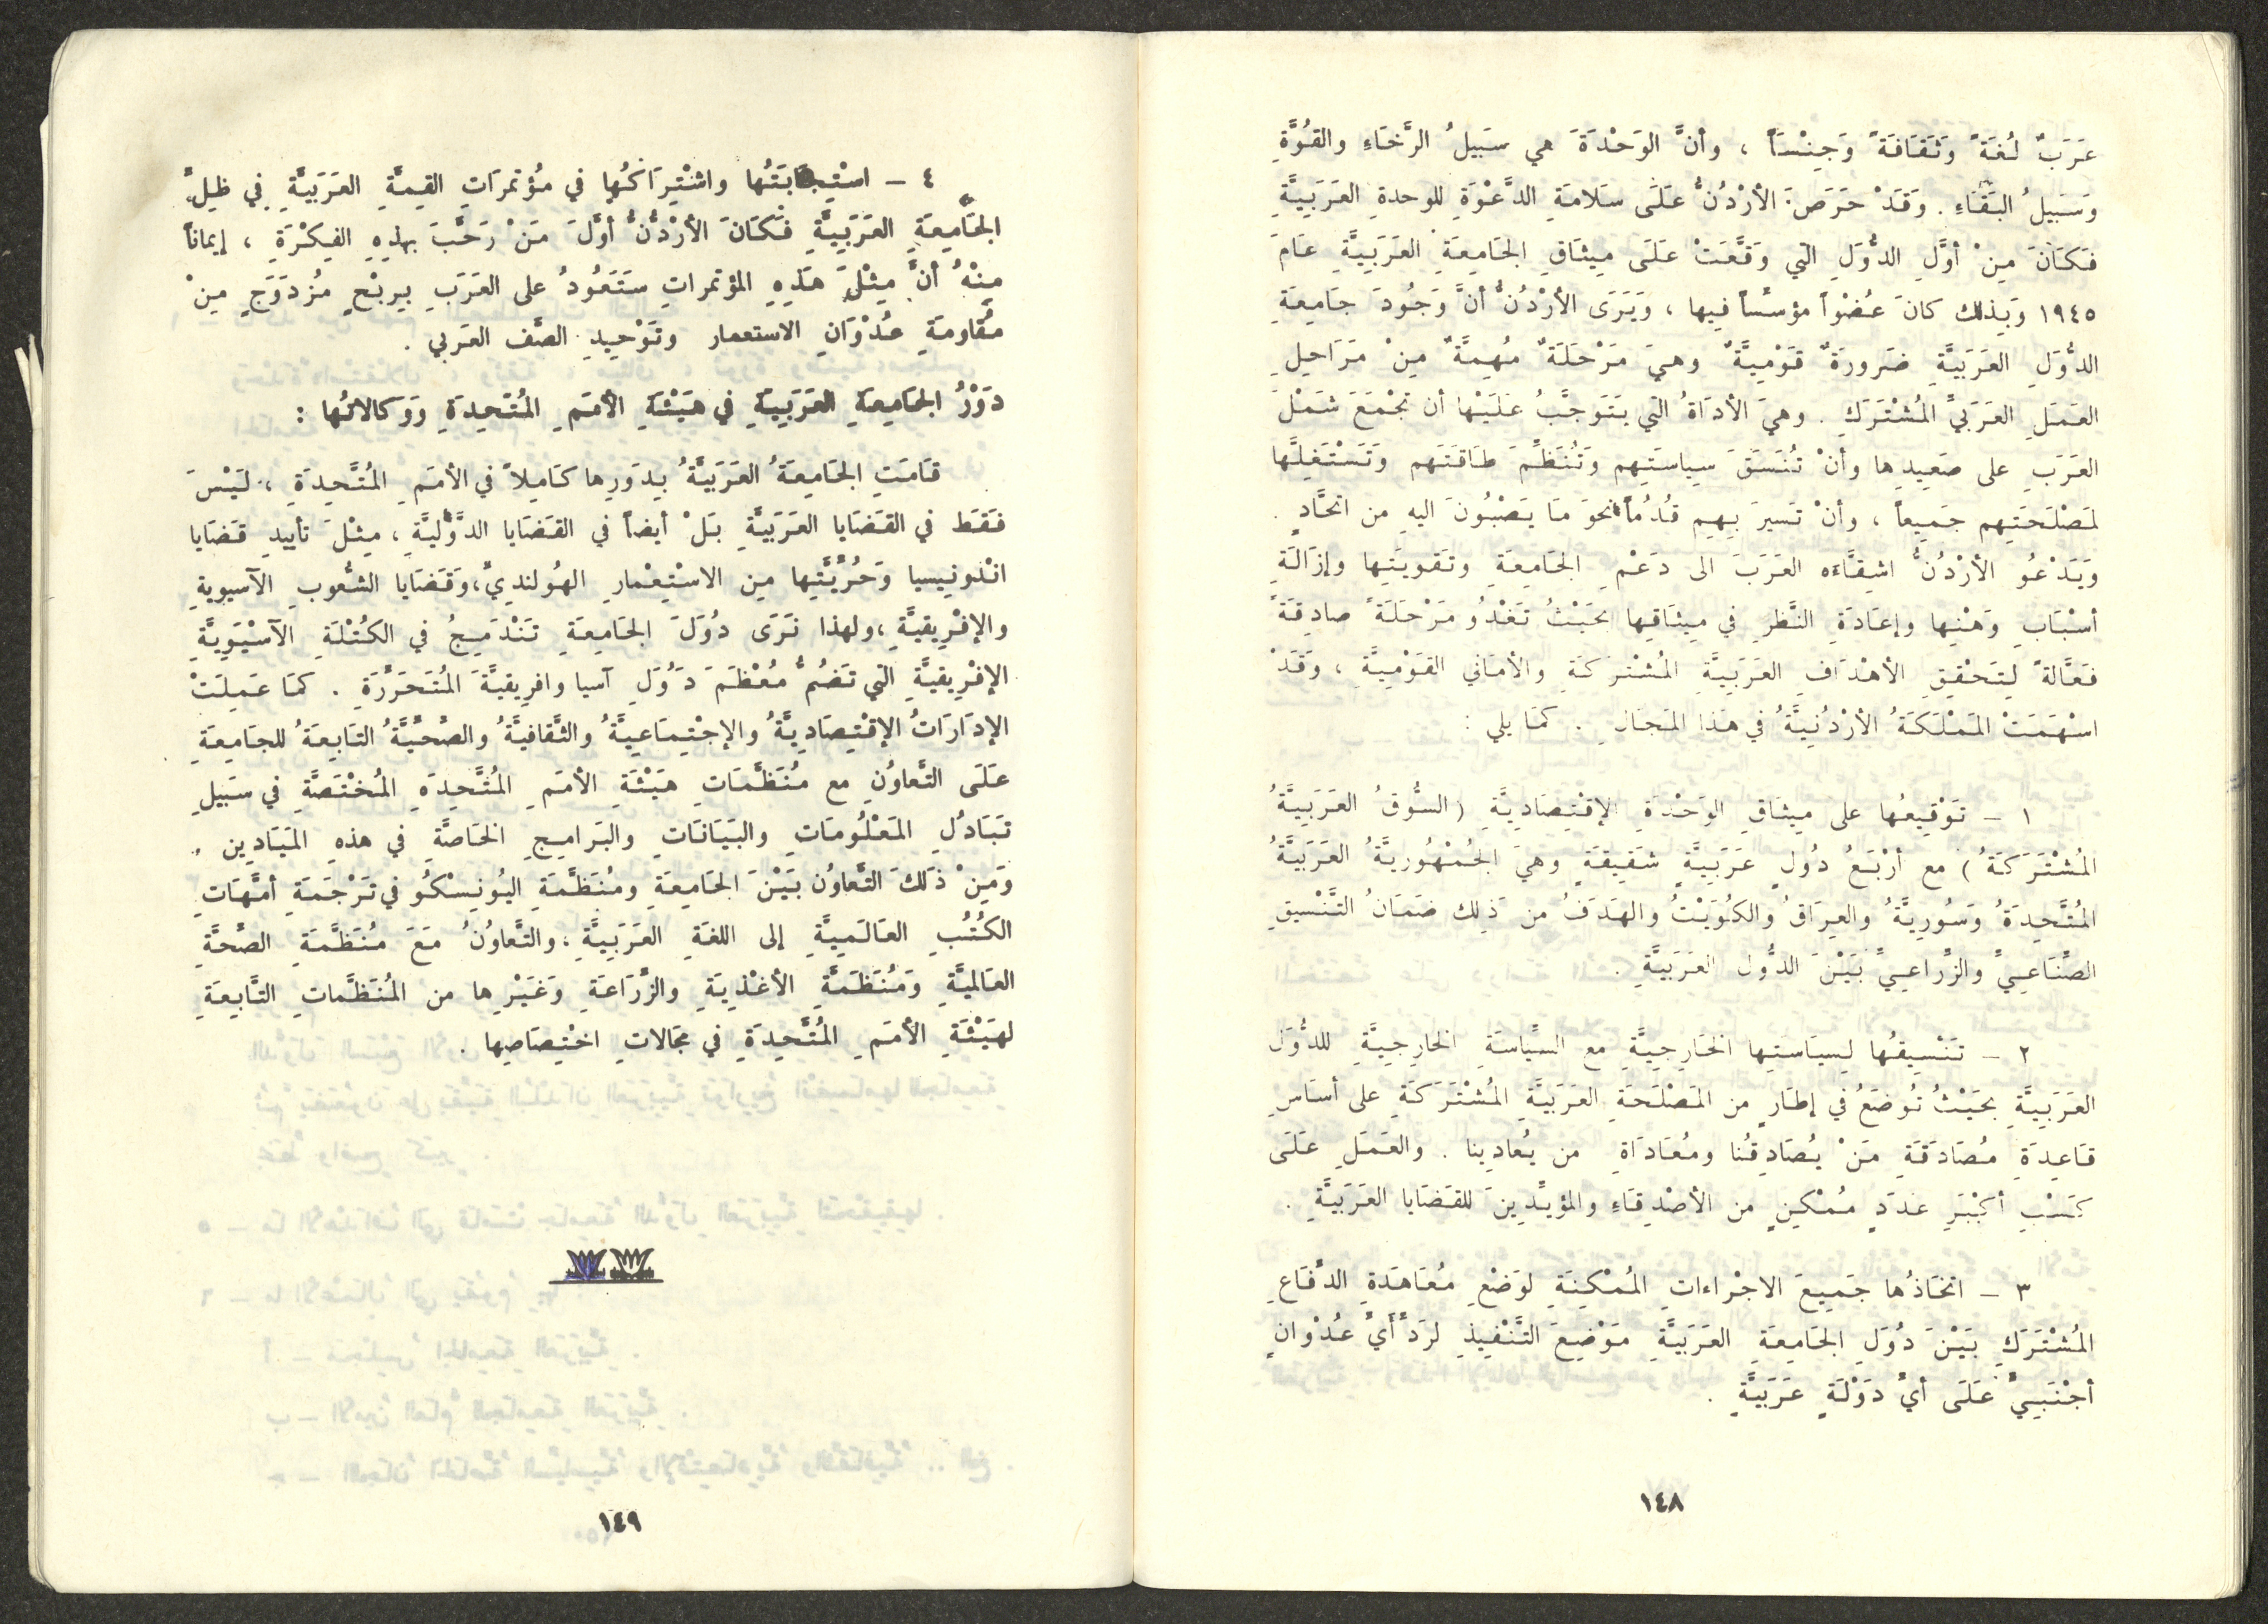 عَرَبٌ لُغَةً وَثَقَافَةً وَجِنْسَاً ، وأنَّ الوَحْدَةَ هي سَبِيلُ الرَّخَاءِ والقُوَّةِ
وَسَبِيلُ البَقَاءِ . وَقَدْ حَرَصَ الأرْدُنُّ عَلَى سَلامَةِ الدَّعْوَةِ للوحدةِ العَرَبِيَّةِ
فَكَانَ مِنْ أوَّلِ الدُّوَلِ التي وَقَّعَتْ عَلَى مِيثَاقِ الجَامِعَةِ العَرَبِيَّةِ عَامَ
١٩٤٥ وَبِذلك كانَ عُضْواً مؤسِّساً فيها ، وَيَرَى الأرْدُنُّ أنَّ وَجُودَ جَامِعَةِ
الدُّوَلِ العَرَبِيَّةِ ضَرورَةٌ قَوْمِيَّةٌ وهيَ مَرْحَلَةٌ مُهِمَّةٌ مِنْ مَرَاحِلِ
العَمَلِ العَرَبيِّ المُشْتَرَكِ . وهيَ الأدَاةُ التي يَتَوَجَّبُ عَلَيْها أن تَجْمَعَ شَمْلَ
العَرَبِ على صَعِيدِها وأنْ تُنَسِّقَ سِياسَتِهم وَتُنَظِّمَ طَاقَتَهم وَتَسْتَغِلَّها
لمَصْلَحَتِهم جَمِيعاً ، وأنْ تَسيرَ بِهِم قُدُمَاً نحوَ مَا يَصْبُونَ اليهِ من اتحَّادٍ .
وَيَدْعُو الأرْدُنُّ اشِقَّاءَه العَرَبَ الى دَعْمِ الجَامِعَةِ وتَقوِيَتِها وإزَالَةِ
أسْبَابِ وَهْنِها وإعَادَةِ النَّظرِ في مِيثَاقِها بحَيْثُ تَغْدُو مَرْحَلَةً صادِقَةً
فَعَّالةً لِتَحْقِيقِ الأهْدَافِ العَرَبِيَّةِ المُشْتَرَكَةِ والأمَاني القَوْمِيَّةِ ، وَقَدْ
اسْهَمَتْ المَمْلَكَةُ الأرْدُنِيَّةُ في هَذا المَجَالِ . كمَا يلي :
١ – تَوْقِيعُها على مِيثَاقِ الوَحْدَةِ الإقْتِصَادِيَّةِ (السُّوقُ العَرَبِيَّةُ
المُشْتَرَكَةُ) مع أرْبَعُ دُوَلٍ عَرَبِيَّةٍ شَقِيقَةٍ وهيَ الجُمْهُوريَّةُ العَرَبِيَّةُ
المُتَّحِدَةُ وَسُورِيَّةُ والعِرَاقُ والكُوَيْتُ والهَدَفُ من ذَلِك ضَمَانُ التَّنْسيقِ
الصِّنَاعِيِّ والزِّراعِيِّ بَيْنَ الدُّوَلِ العَرَبِيَّةِ .
٢ – تَنْسِيقُها لِسِيَاسَتِها الخَارِجِيَّةِ مع السِّيَاسَةِ الخارِجِيَّةِ للدُّوَلِ
العَرَبِيَّةِ بحَيْثُ تُوضَعُ في إطَارٍ من المَصْلَحَةِ العَرَبِيَّةِ المُشْتَرَكَةِ على أسَاسِ
قَاعِدَةِ مُصَادَقَةِ مَنْ يُصَادِقُنا ومُعَادَاةِ من يُعادِينا . والعَمَلِ عَلَى
كَسْبِ أكْبَرِ عَدَدٍ مُمْكِنٍ من الأصْدِقَاءِ والمؤيِّدِينَ للقَضَايا العَرَبِيَّةِ .
٣ – اتخَاذُها جَمِيعَ الاجْراءاتِ المُمْكِنَةِ لوَضْعِ مُعَاهَدَةِ الدِّفَاعِ
المُشْتَرَكِ بَيْنَ دُوَلِ الجَامِعَةِ العَرَبِيَّةِ مَوْضِعَ التَّنْفِيذِ لرَدِّ أَيِّ عُدْوانٍ
أجْنَبِيٍّ عَلَى أيِّ دَوْلَةٍ عَرَبِيَّةٍ .
١٤٨
٤ – اسْتِجَابَتُها واشْتِرَاكُها في مُؤتمرَاتِ القِمَّةِ العَرَبيَّةِ في ظِلِّ
الجَامِعَةِ العَرَبِيَّةِ فَكَانَ الأرْدُنُّ أوَّلَ مَنْ رَحَّبَ بهذِهِ الفِكْرَةِ ، إيماناً
مِنْهُ أنَّ مِثْلَ هَذِهِ المؤتمراتِ سَتَعُودُ على العَرَبِ بِرِبْحٍ مُزْدَوَجٍ مِنْ
مُقاومَةِ عُدْوَانِ الاستعمار وتَوْحِيدِ الصَّف العَرَبي .
دَوْرُ الجَامِعَةِ العَرَبِيَةِ في هَيْئَةِ الأمَمِ المُتَّحِدَةِ وَوَكالاتُها :
قَامَتِ الجَامِعَةُ العَرَبِيَّةُ بِدَورِها كَامِلاً في الأمَمِ المُتَّحِدَةِ ، لَيْسَ
فَقَط في القَضَايا العَرَبِيَّةِ بَلْ أيضاً في القَضَايا الدَّوْليَّةِ ، مِثْلَ تأييدِ قَضَايا
انْدونِيسيا وَحُرِّيَّتِها مِن الاسْتِعْمارِ الهُولنديِّ،وَقَضَايا الشُّعُوبِ الآسيويةِ
والإفْرِيقيَّةِ ،ولهذا نَرَى دُوَلَ الجَامِعَةِ تَنْدَمِجُ في الكُتْلَةِ الآسْيَوِيَّةِ
الإفْرِيقيَّةِ التي تَضُمُّ مُعْظَمَ دُوَلِ آسيا وافرِيقيَّةَ المُتَحَرِّرَةِ . كمَا عَمِلَتْ
الإدَارَاتُ الإقْتِصَادِيَّةُ والإجْتِمَاعِيَّةُ والثَّقافيَّةُ والصِّحِّيَّةُ التَابعَةُ للجَامِعَةِ
عَلَى التَّعاوُنِ مع مُنَظَّمَاتِ هَيْئَةِ الأمَمِ المُتَّحِدَةِ المُخْتَصَّةِ في سَبِيلِ
تَبَادُلِ المَعْلُومَاتِ والبَيَانَاتِ والبَرامِجِ الخَاصَّةِ في هذهِ المَيَادِين .
وَمِنْ ذَلكَ التَّعاوُن بَيْنَ الجَامِعَةِ ومُنَظَّمَةِ اليُونِسْكُو في تَرْجَمَةِ أمَّهَاتِ
الكُتُبِ العَالَمِيَّةِ إلى اللغَةِ العَرَبِيَّةِ ،والتَّعاوُنُ مَعَ مُنَظَّمَةِ الصِّحَّةِ
العَالميَّةِ وَمُنَظَّمَةِ الأغْذِيَةِ والزِّرَاعَةِ وَغَيْرِها من المُنَظَّماتِ التَّابِعَةِ
لهَيْئَةِ الأمَمِ المُتَّحِدَةِ في مجَالاتِ اخْتِصَاصِها .
١٤٩